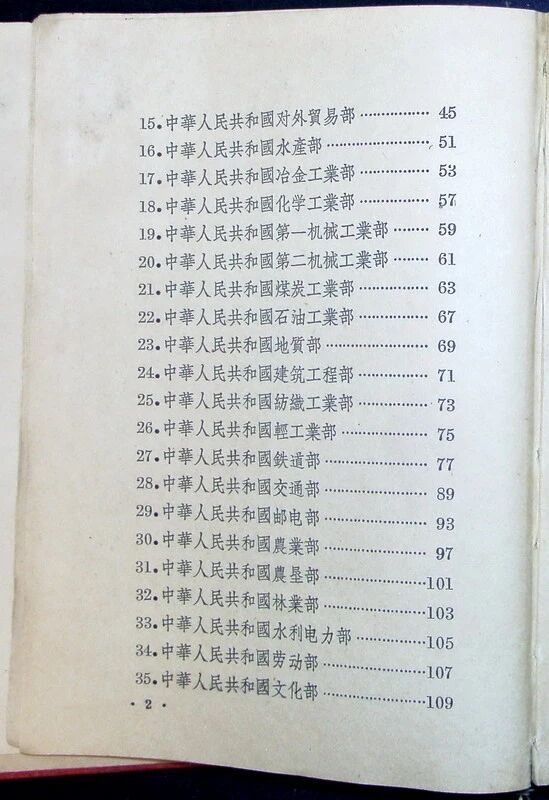 15.中華人民共和國对外貿易部……………… 45
16.中華人民共和國水產部…………………… 51
17.中華人民共和國冶金工業部……………… 53
18.中華人民共和國化学工業部……………… 57
19.中華人民共和國第一机械工業部……… 59
20.中華人民共和國第二机械工業部……… 61
21.中華人民共和國煤炭工業部……………… 63
22.中華人民共和國石油工業部……………… 67
23.中華人民共和國地質部…………………… 69
24.中華人民共和國建筑工程部……………… 71
25.中華人民共和國紡織工業部……………… 73
26.中華人民共和國輕工業部………………… 75
27.中華人民共和國鉄道部…………………… 77
28.中華人民共和國交通部…………………… 89
29.中華人民共和國邮电部…………………… 93
30.中華人民共和國農業部…………………… 97
31.中華人民共和國農垦部……………………101
32.中華人民共和國林業部……………………103
33.中華人民共和國水利电力部………………105
34.中華人民共和國劳动部……………………107
35.中華人民共和國文化部……………………109
· 2 ·